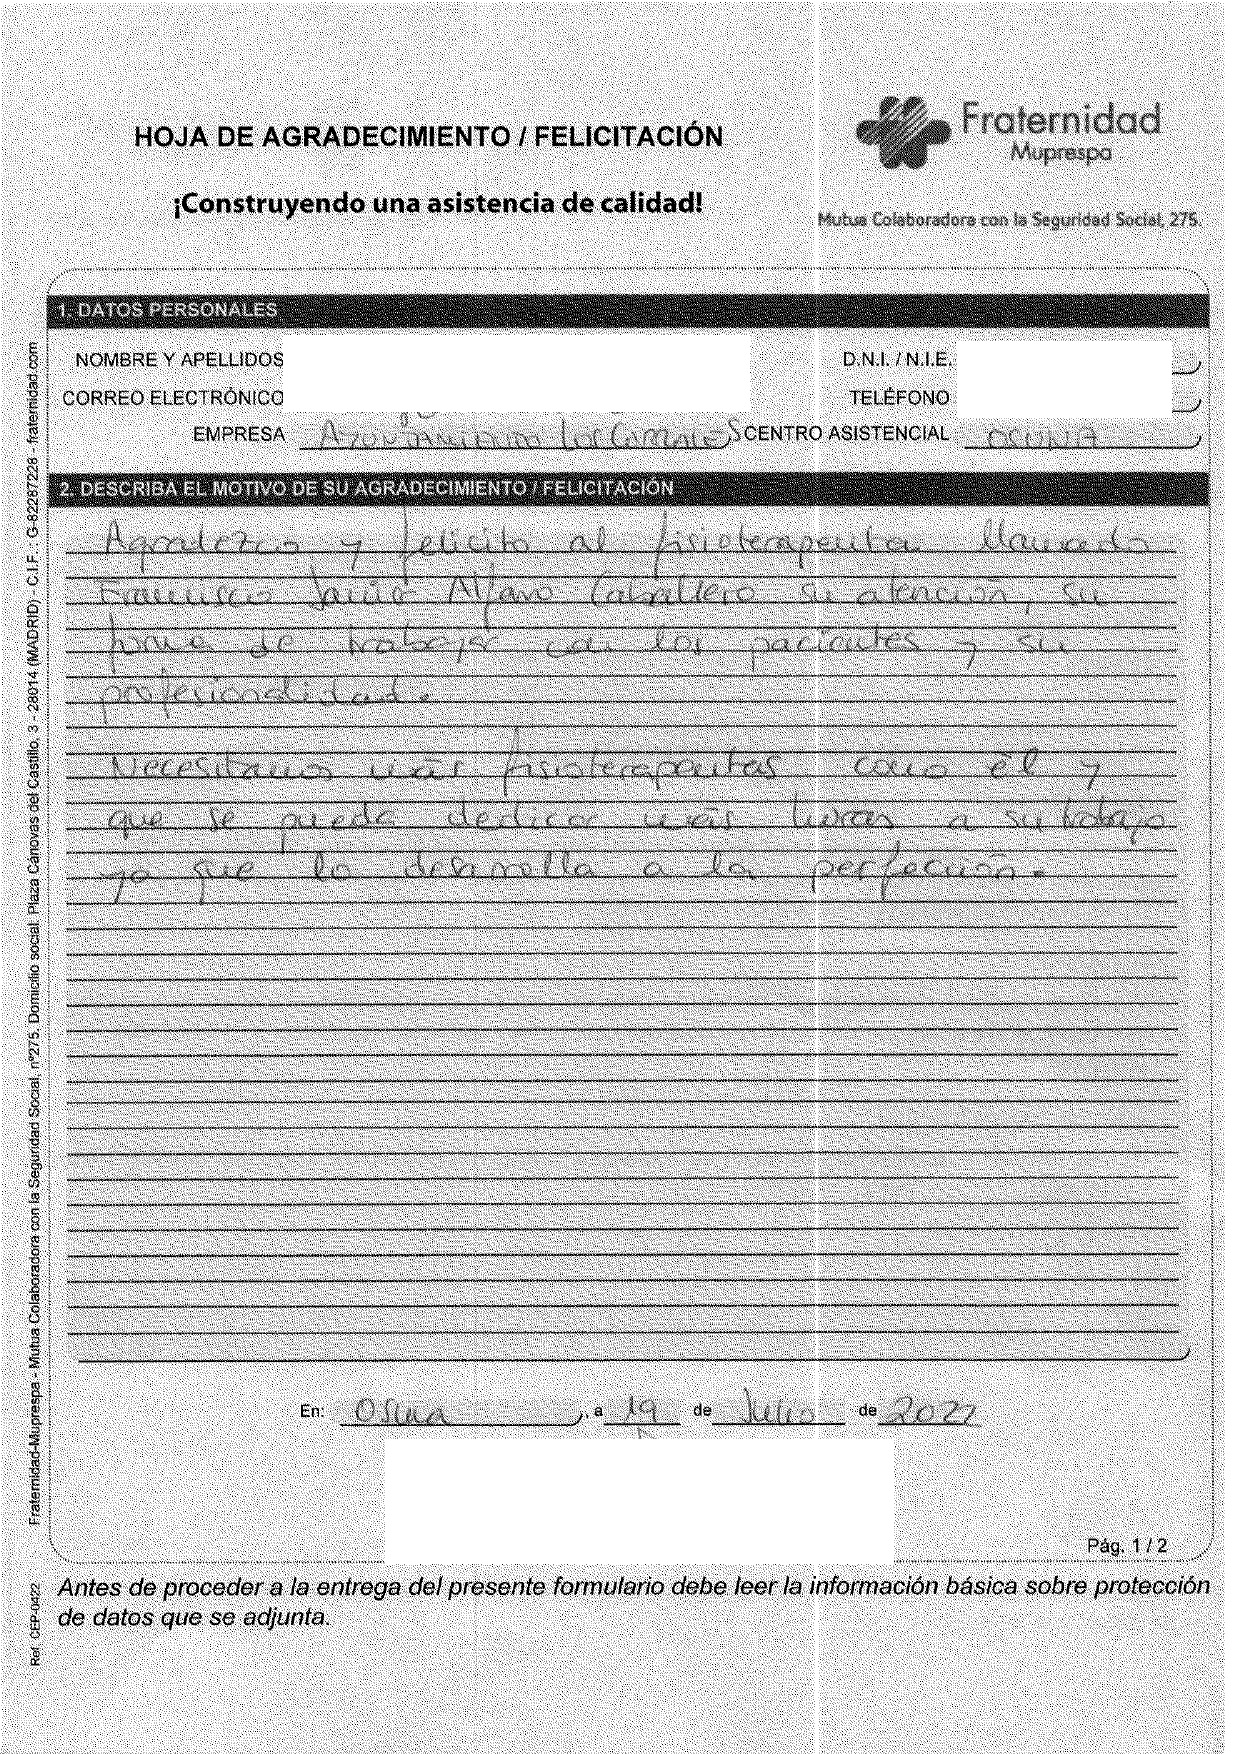 HOJA DE AGRADECIMIENTO / FELICITACIÓN
¡Construyendo una asistencia de calidad!
Fraternidad
Muprespa
Mutua Colaboradora con la Seguridad Social, 275.
1. DATOS PERSONALES
NOMBRE Y APELLIDOS
D.N.I. / N.I.E.
CORREO ELECTRÓNICO
TELÉFONO
EMPRESA Ayuntamiento Los Corrales CENTRO ASISTENCIAL OSUNA
2. DESCRIBA EL MOTIVO DE SU AGRADECIMIENTO / FELICITACIÓN
Agradezco y felicito al fisioterapeuta llamado
Francisco Javier Alfaro Caballero su atención, su
forma de trabajar con los pacientes y su
profesionalidad.
Necesitamos más fisioterapeutas como él y
que se pueda dedicar más horas a su trabajo
ya que lo desarrolla a la perfección.
En: Osuna, a 19 de Julio de 2022
Pág. 1 / 2
Antes de proceder a la entrega del presente formulario debe leer la información básica sobre protección
de datos que se adjunta.
Fraternidad-Muprespa - Mutua Colaboradora con la Seguridad Social, nº275. Domicilio social. Plaza Cánovas del Castillo, 3 - 28014 (MADRID) - C.I.F. G-82287228 - fraternidad.com
Ref. CEP-0422